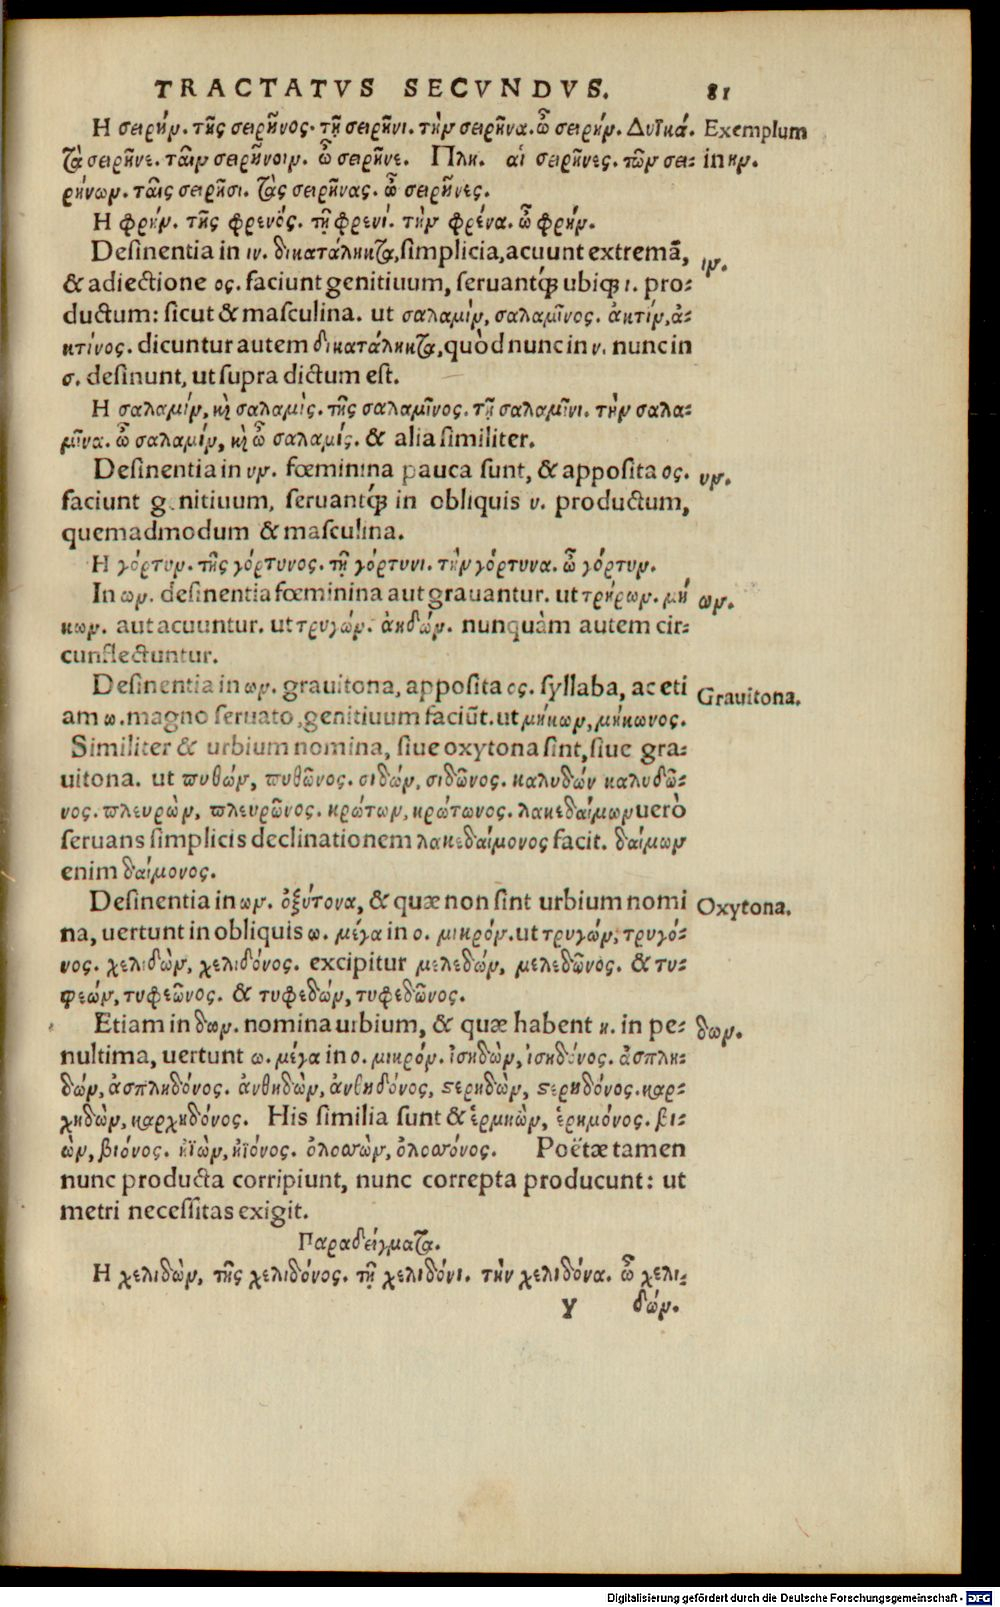 TRACTATVS SECVNDVS. 81
Η σειρήν. τῆς σειρῆνος. τῇ σειρῆνι. τὴν σειρῆνα. ὦ σειρήν. Δυϊκά. Exemplum
τὰ σειρῆνε. ταῖν σειρῆνοιν. ὦ σειρῆνε. Πλη. αἱ σειρῆνες. τῶν σει- in ην.
ρήνων. ταῖς σειρῆσι. τὰς σειρῆνας. ὦ σειρῆνες.
Η φρήν. τῆς φρενός. τῇ φρενί. τὴν φρένα. ὦ φρήν.
Desinentia in ιν. δικατάληκτα, simplicia, acuunt extremā, ιν.
& adiectione ος. faciunt genitiuum, seruantq́ꝫ ubiqꝫ ι. pro-
ductum: sicut & masculina. ut σαλαμίν, σαλαμῖνος. ἀκτίν, ἀ-
κτίνος. dicuntur autem δικατάληκτα, quòd nunc in ν. nunc in
σ. desinunt, ut supra dictum est.
Η σαλαμίν, κὶ σαλαμὶς. τῆς σαλαμῖνος. τῇ σαλαμῖνι. τὴν σαλα-
μῖνα. ὦ σαλαμίν, κὶ ὦ σαλαμίς. & alia similiter.
Desinentia in υν. fœminina pauca sunt, & apposita ος. υν.
faciunt genitiuum, seruantq́ꝫ in obliquis υ. productum,
quemadmodum & masculina.
Η γόρτυν. τῆς γόρτυνος. τῇ γόρτυνι. τὴν γόρτυνα. ὦ γόρτυν.
In ων. desinentia fœminina aut grauantur. ut τρήρων. μή ων.
κων. aut acuuntur. ut τρυγών. ἀηδών. nunquàm autem cir-
cunflectuntur.
Desinentia in ων. grauitona, apposita ος. syllaba, ac eti Grauitona.
am ω. magno seruato, genitiuum faciūt. ut μήκων, μήκωνος.
Similiter & urbium nomina, siue oxytona sint, siue gra-
uitona. ut πυθών, πυθῶνος. σιδών, σιδῶνος. καλυδών καλυδῶ-
νος. πλευρὼν, πλευρῶνος. κρώτων, κρώτωνος. λακεδαίμων uerò
seruans simplicis declinationem λακεδαίμονος facit. δαίμων
enim δαίμονος.
Desinentia in ων. ὀξύτονα, & quæ non sint urbium nomi Oxytona.
na, uertunt in obliquis ω. μέγα in ο. μικρόν. ut τρυγών, τρυγό-
νος. χελιδὼν, χελιδόνος. excipitur μελεδών, μελεδῶνος. & τυ-
φεών, τυφεῶνος. & τυφεδών, τυφεδῶνος.
Etiam in δων. nomina urbium, & quæ habent η. in pe- δων.
nultima, uertunt ω. μέγα in ο. μικρόν. ἰσηδὼν, ἰσηδόνος. ἀσπλη-
δών, ἀσπληδόνος. ἀνθηδὼν, ἀνθηδόνος, ϛερηδὼν, ϛερηδόνος. καρ-
χηδὼν, καρχηδόνος. His similia sunt & ἑρμηὼν, ἑρημόνος. βι-
ὼν, βιόνος. κϊὼν, κϊόνος. ὀλοσὼν, ὀλοσόνος. Poëtæ tamen
nunc producta corripiunt, nunc correpta producunt: ut
metri necessitas exigit.
Παραδείγματα.
Η χελιδὼν, τῆς χελιδόνος. τῇ χελιδόνι. τὴν χελιδόνα. ὦ χελι-
y δών.
Digitalisierung gefördert durch die Deutsche Forschungsgemeinschaft - DFG